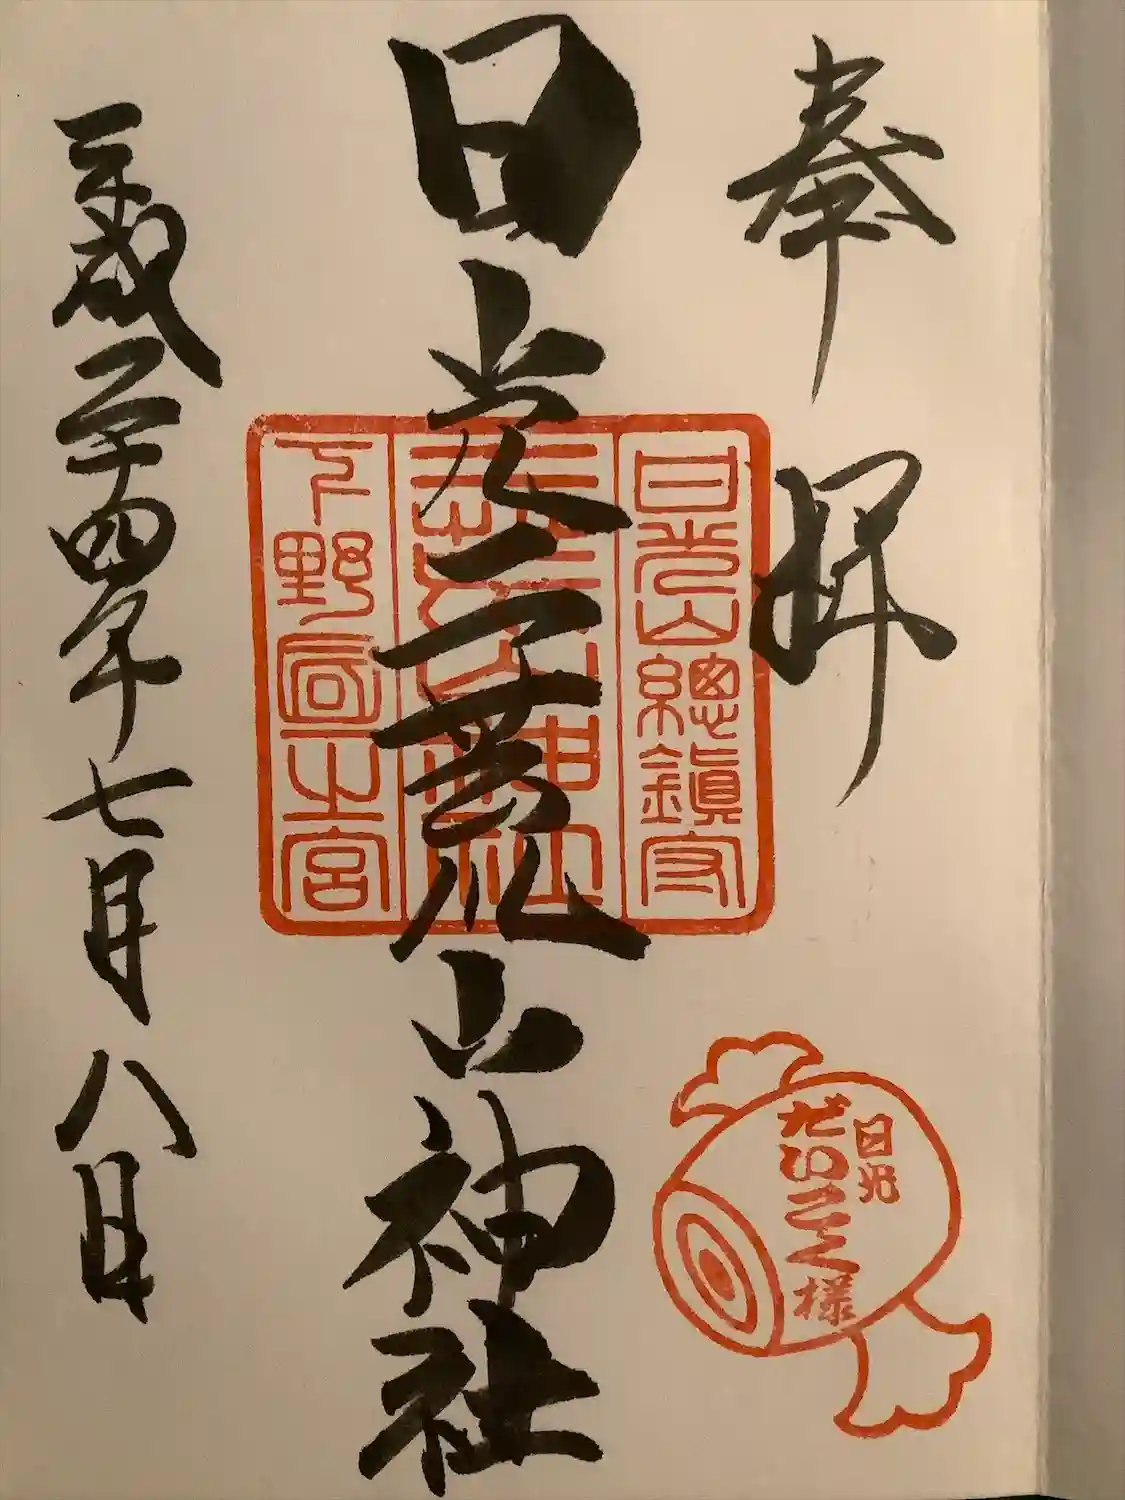 奉拝
日光山總鎮守
日光
だいこく様
日光二荒山神社
二荒山神社
下野國一之宮
平成二十四年七月八日